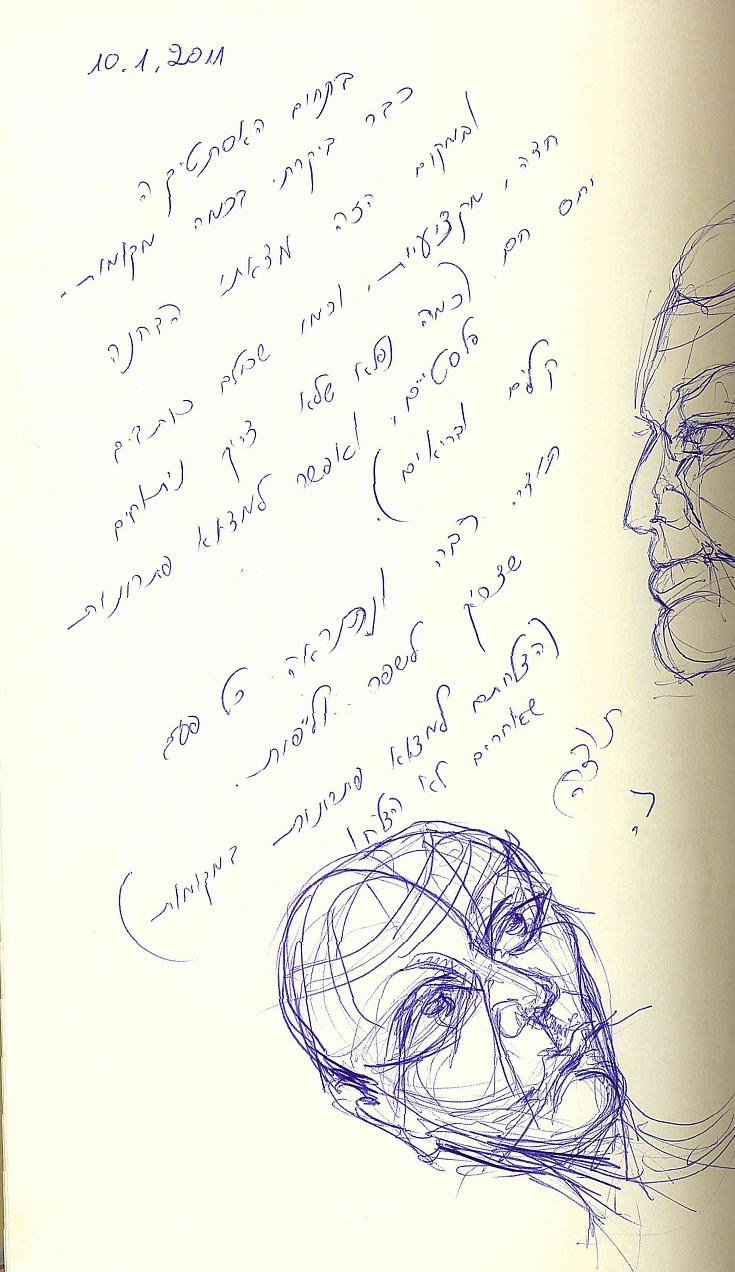 10.1.2011
בתחום האסתטיקה
כבר ביקרתי בכמה מקומות.
ובמקום הזה מצאתי הבחנה
חדה, מקצועית, וכמו שכולם כותבים
יחס חם. (וכמה נפלא שלא צריך ניתוחים
פלסטיים, ואפשר למצוא פתרונות
קלים ובריאים).
תודה רבה ונתראה כל פעם
שצריך לשפר קליפות.
(הצלחתם למצוא פתרונות במקומות
שאחרים לא הצליחו)